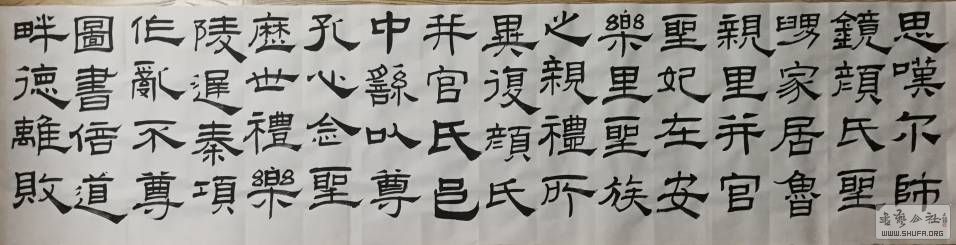 思嘆尔師
鏡顏氏聖
舅家居魯
親里并官
聖妃在安
樂里聖族
之親禮所
異復顏氏
并官氏邑
中繇以尊
孔心念聖
歷世禮樂
陵遲秦項
作亂不尊
圖書倍道
畔德離敗
书艺公社
WWW.SHUFA.ORG